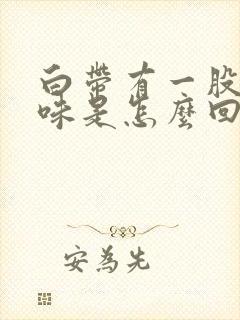 白帶有一股
味是怎麼回
安為先